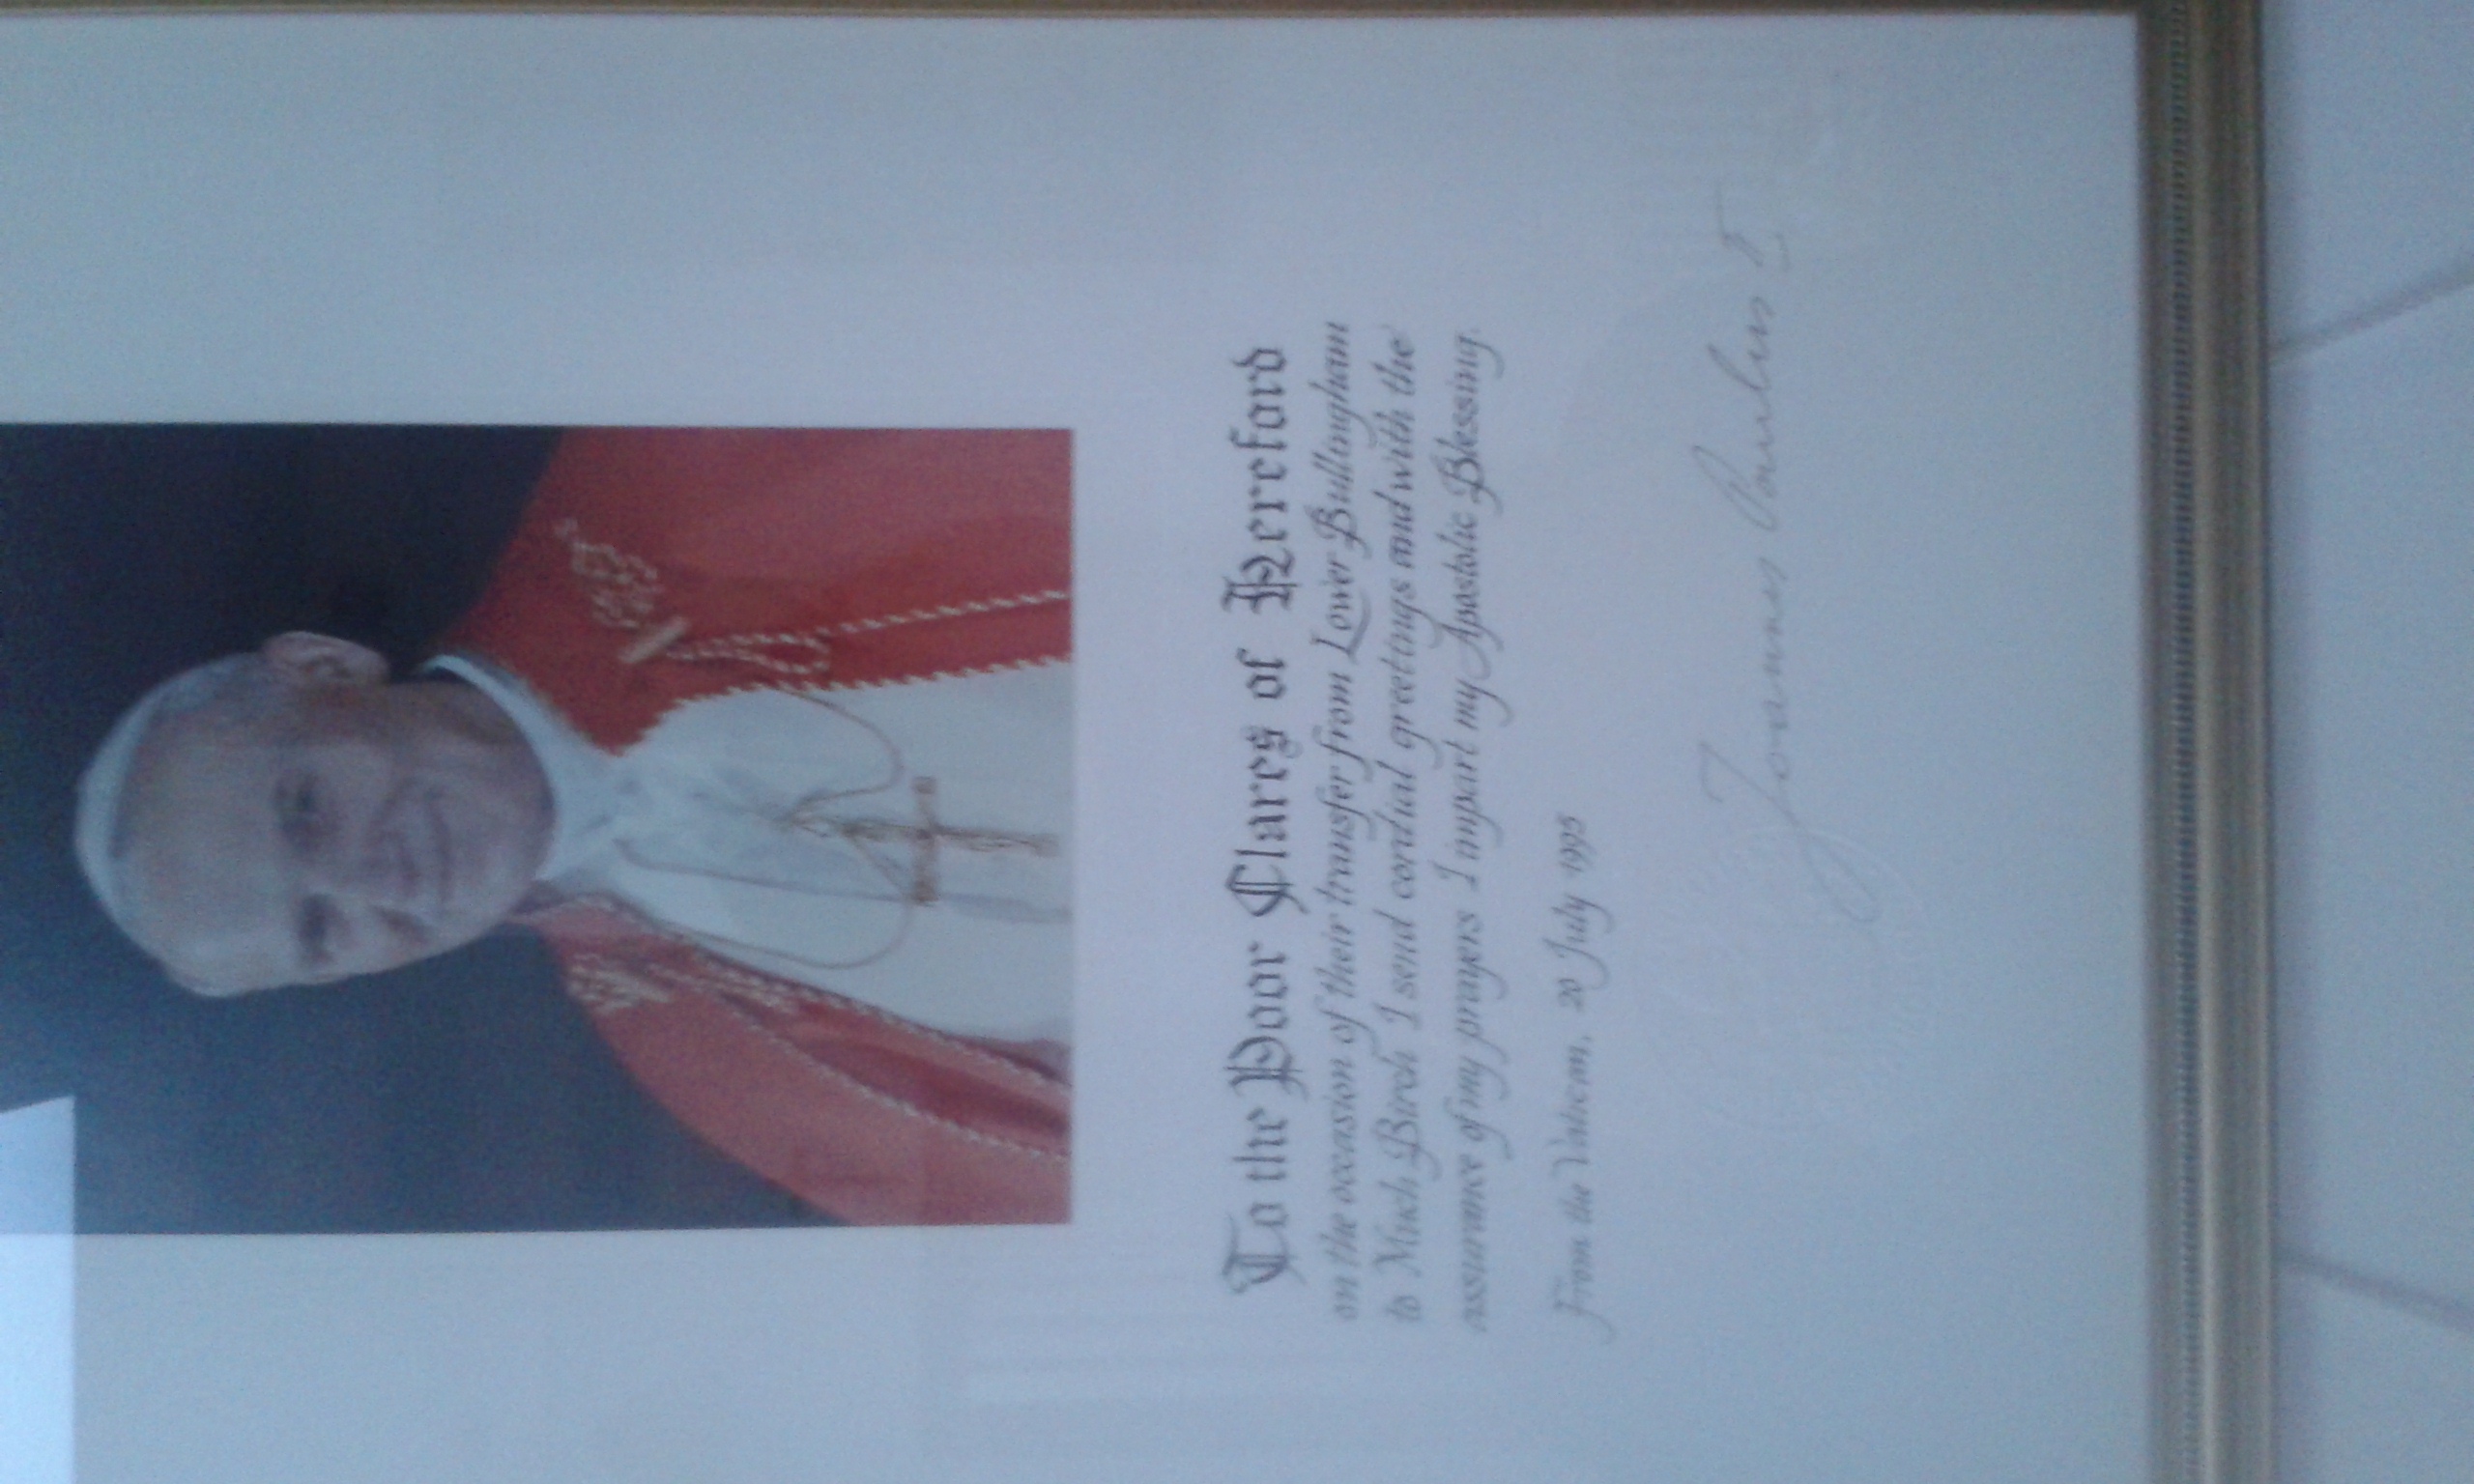 To the Poor Clares of Hereford
on the occasion of their transfer from Lower Bullingham
to Much Birch I send cordial greetings and with the
assurance of my prayers I impart my Apostolic Blessing.
From the Vatican, 20 July 1995
Joannes Paulus II